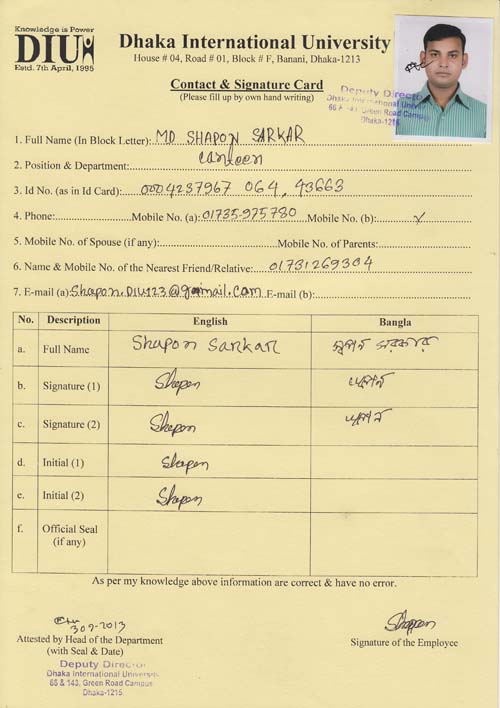 Knowledge is Power
DIU
Estd. 7th April, 1995
Dhaka International University
House # 04, Road # 01, Block # F, Banani, Dhaka-1213
Contact & Signature Card
(Please fill up by own hand writing)
Deputy Director
Dhaka International University
66 & 143, Green Road Campus
Dhaka-1215
1. Full Name (In Block Letter): MD SHAPON SARKAR
2. Position & Department: canteen
3. Id No. (as in Id Card): 0004237967 064, 43663
4. Phone: Mobile No. (a): 01735-975780 Mobile No. (b): x
5. Mobile No. of Spouse (if any): Mobile No. of Parents:
6. Name & Mobile No. of the Nearest Friend/Relative: 01731269304
7. E-mail (a): Shapon.DIU123@gmail.com E-mail (b):
No. Description English Bangla
a. Full Name Shapon Sarkar স্বপন সরকার
b. Signature (1) Shapon স্বপন
c. Signature (2) Shapon স্বপন
d. Initial (1) Shapon
e. Initial (2) Shapon
f. Official Seal (if any)
As per my knowledge above information are correct & have no error.
309-2013
Shapon
Attested by Head of the Department
(with Seal & Date)
Signature of the Employee
Deputy Director
Dhaka International University
66 & 143, Green Road Campus
Dhaka-1215